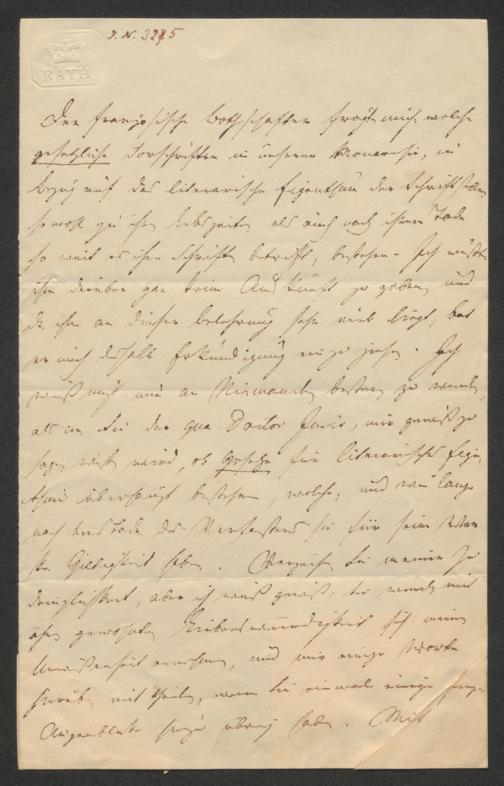 BATH
J. N. 3275
Der französische Bothschafter frägt mich welche
gesetzliche Vorschriften in unserer Monarchie, in
bezug auf das literarische Eigenthum der Schriftsteller
sowohl zu ihren Lebzeiten als auch nach ihrem Tode
so weit es ihre Schriften betrifft, bestehen. Ich wußte
ihm darüber gar keine Auskunft zu geben, und
da ihm an dieser belehrung sehr viel liegt, bat
er mich deshalb Erkundigung einzuziehen. Ich
weiß mich nun an Niemanden besser zu wenden,
als an Sie der qua Doctor Juris, mir gewiß zu
sagen wissen wird, ob Gesetze für literarisches Eigen
thum überhaupt bestehen, welche, und wie lange
nach dem Tode des Verfassers sie für seine Erben
Gültigkeit haben. Verzeihen Sie meine Zu
dringlichkeit, aber ich weiß gewiß, Sie werden mit
gewohnter Liebenswürdigkeit sich meiner
Unwissenheit annehmen, und mir einige Worte
hierüber mit theilen, wenn Sie einmal einige
Augenblicke übrig haben. Mit